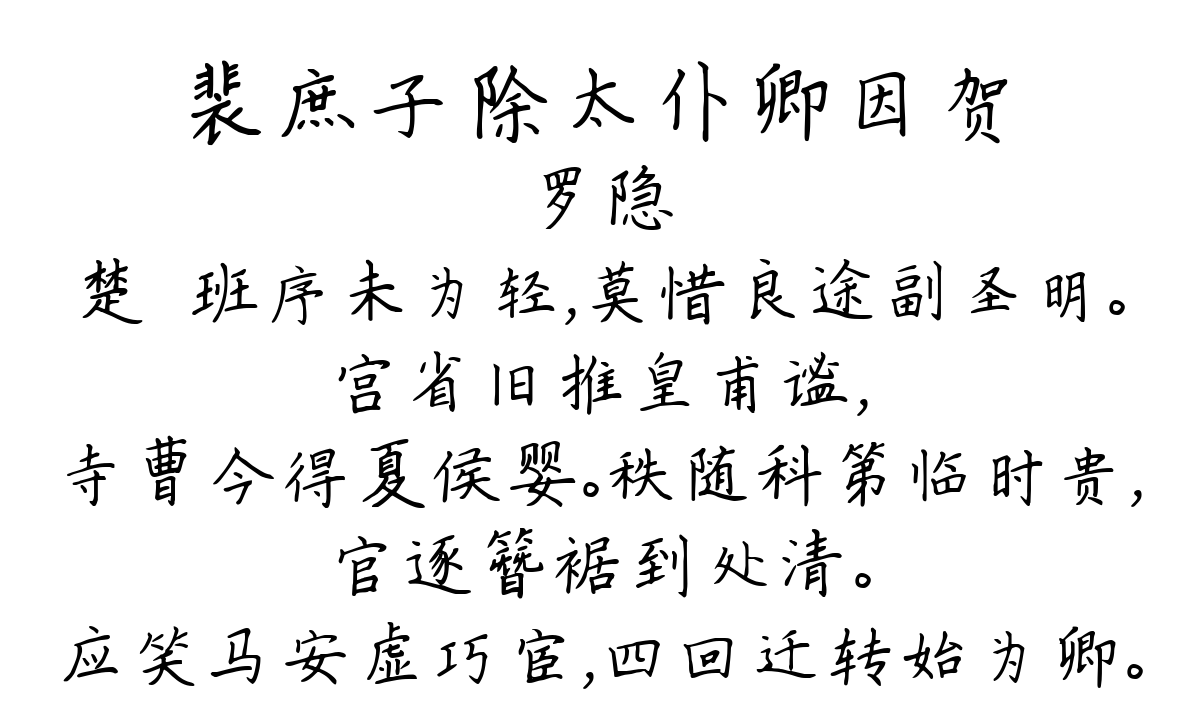 裴庶子除太仆卿因贺
罗隐
楚 班序未为轻,莫惜良途副圣明。
宫省旧推皇甫谧,
寺曹今得夏侯婴。秩随科第临时贵,
官逐簪裾到处清。
应笑马安虚巧宦,四回迁转始为卿。